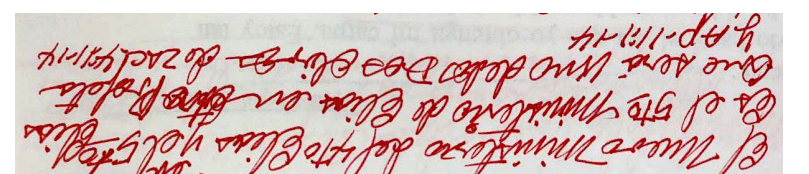 El nuevo Ministerio del 4to Elias y el 5to Elias
Es el 5to Ministerio de Elias en Profeta
Que será Uno de los DOS Olivos de Zac 4:11-14
y Ap-11:1-14